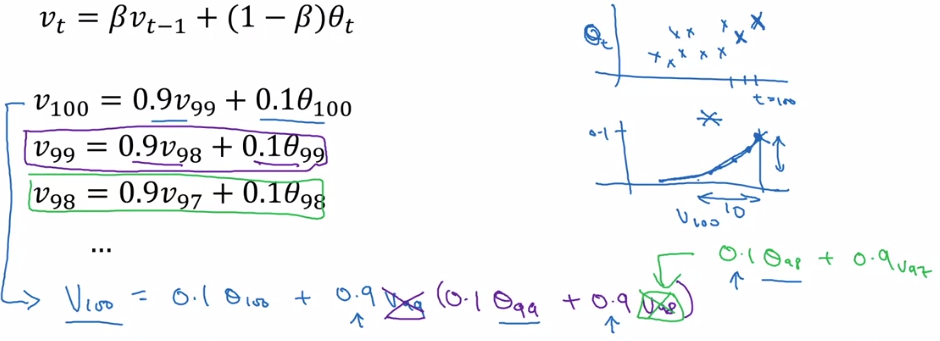 v_t = βv_{t−1} + (1 − β)θ_t
v_100 = 0.9v_99 + 0.1θ_100
v_99 = 0.9v_98 + 0.1θ_99
v_98 = 0.9v_97 + 0.1θ_98
...
V_100 = 0.1 θ_100 + 0.9 V_99 (0.1 θ_99 + 0.9 V_98)
0.1 θ_98 + 0.9 V_97
θ_t
t=100
0.1
10
V_100